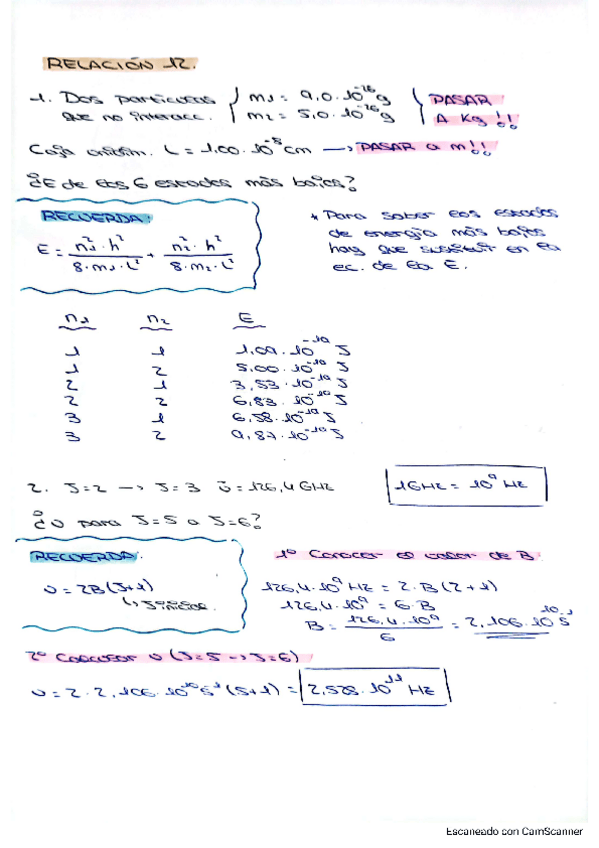 RELACIÓN 12.
1. Dos partículas que no interacc. { m1 = 9,0·10^-26 g
m2 = 5,0·10^-26 g } PASAR A Kg!!
Caja unidim. L = 1,00·10^-8 cm → PASAR a m!!
¿E de los 6 estados más bajos?
RECUERDA:
E = n1²·h² / 8·m1·L² + n2²·h² / 8·m2·L²
* Para saber los estados
de energía más bajos
hay que sustituir en la
ec. de la E.
n1 n2 E
1 1 1,09·10^-18 J
1 2 5,00·10^-18 J
2 1 3,53·10^-18 J
2 2 6,83·10^-18 J
3 1 6,58·10^-18 J
3 2 9,87·10^-18 J
2. J=2 → J=3 ν̄ = 126,4 GHz
1GHz = 10^9 Hz
¿ν para J=5 a J=6?
RECUERDA:
ν = 2B(J+1)
↳ J inicial.
1º Conocer el valor de B.
126,4·10^9 Hz = 2·B(2+1)
126,4·10^9 = 6·B
B = 126,4·10^9 / 6 = 2,106·10^10 s^-1
2º Calcular ν (J=5 → J=6)
ν = 2·2,106·10^10 s^-1 (5+1) = 2,528·10^11 Hz
Escaneado con CamScanner